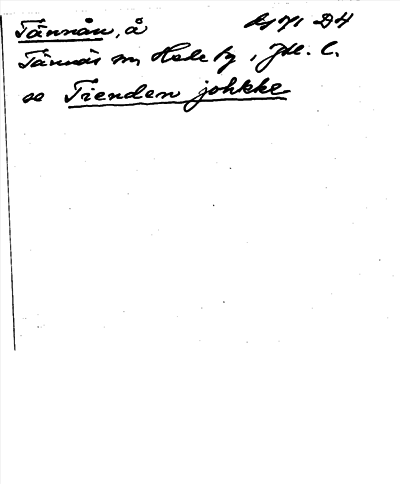 Tännån, å
Tännäs sn, Hede tg, Jtl. l.
se Tienden johkke